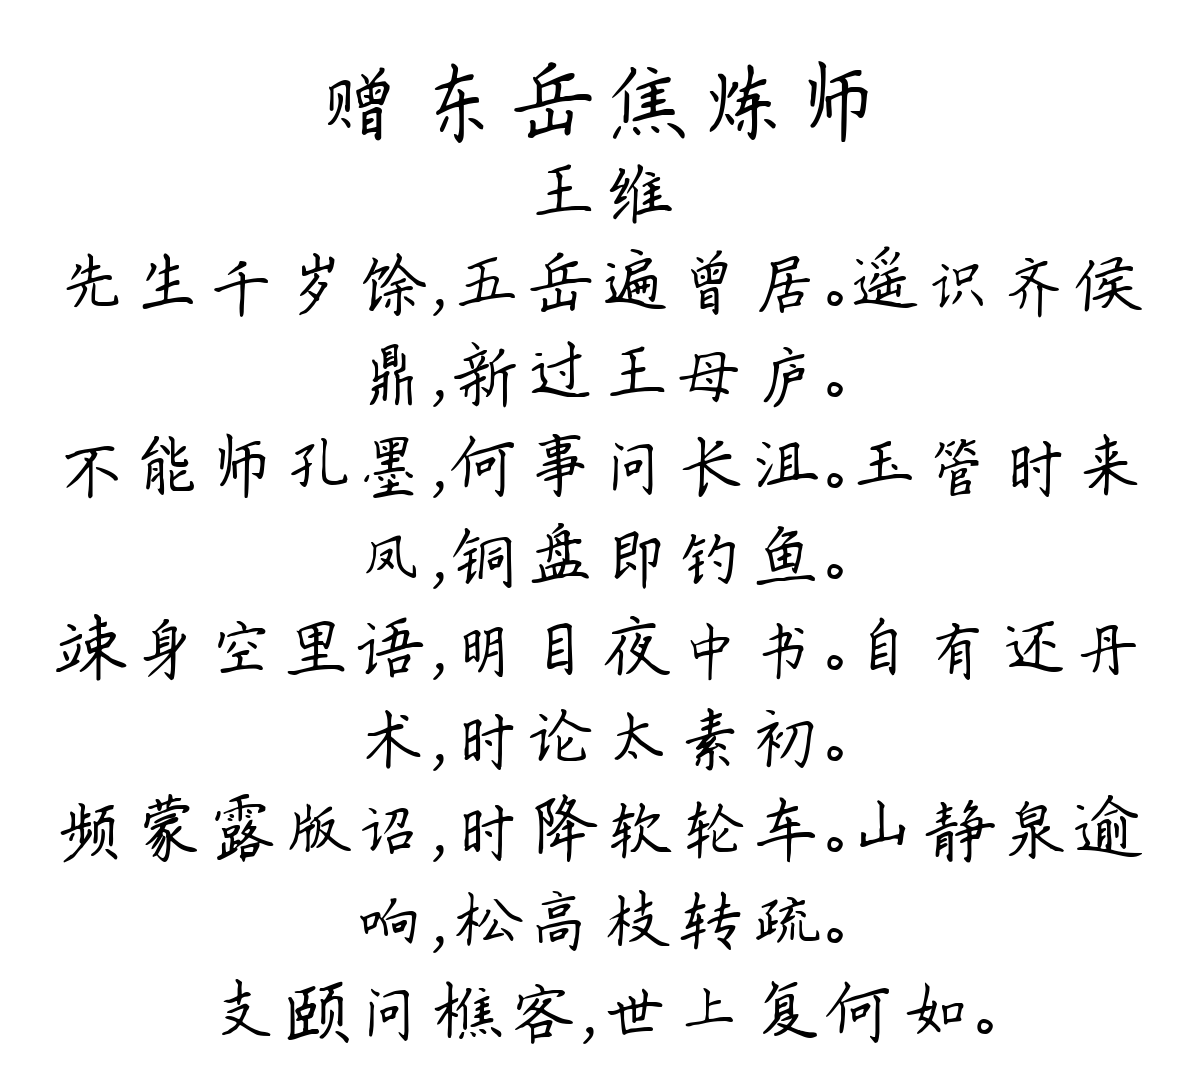 赠东岳焦炼师
王维
先生千岁馀,五岳遍曾居。遥识齐侯
鼎,新过王母庐。
不能师孔墨,何事问长沮。玉管时来
凤,铜盘即钓鱼。
竦身空里语,明目夜中书。自有还丹
术,时论太素初。
频蒙露版诏,时降软轮车。山静泉逾
响,松高枝转疏。
支颐问樵客,世上复何如。